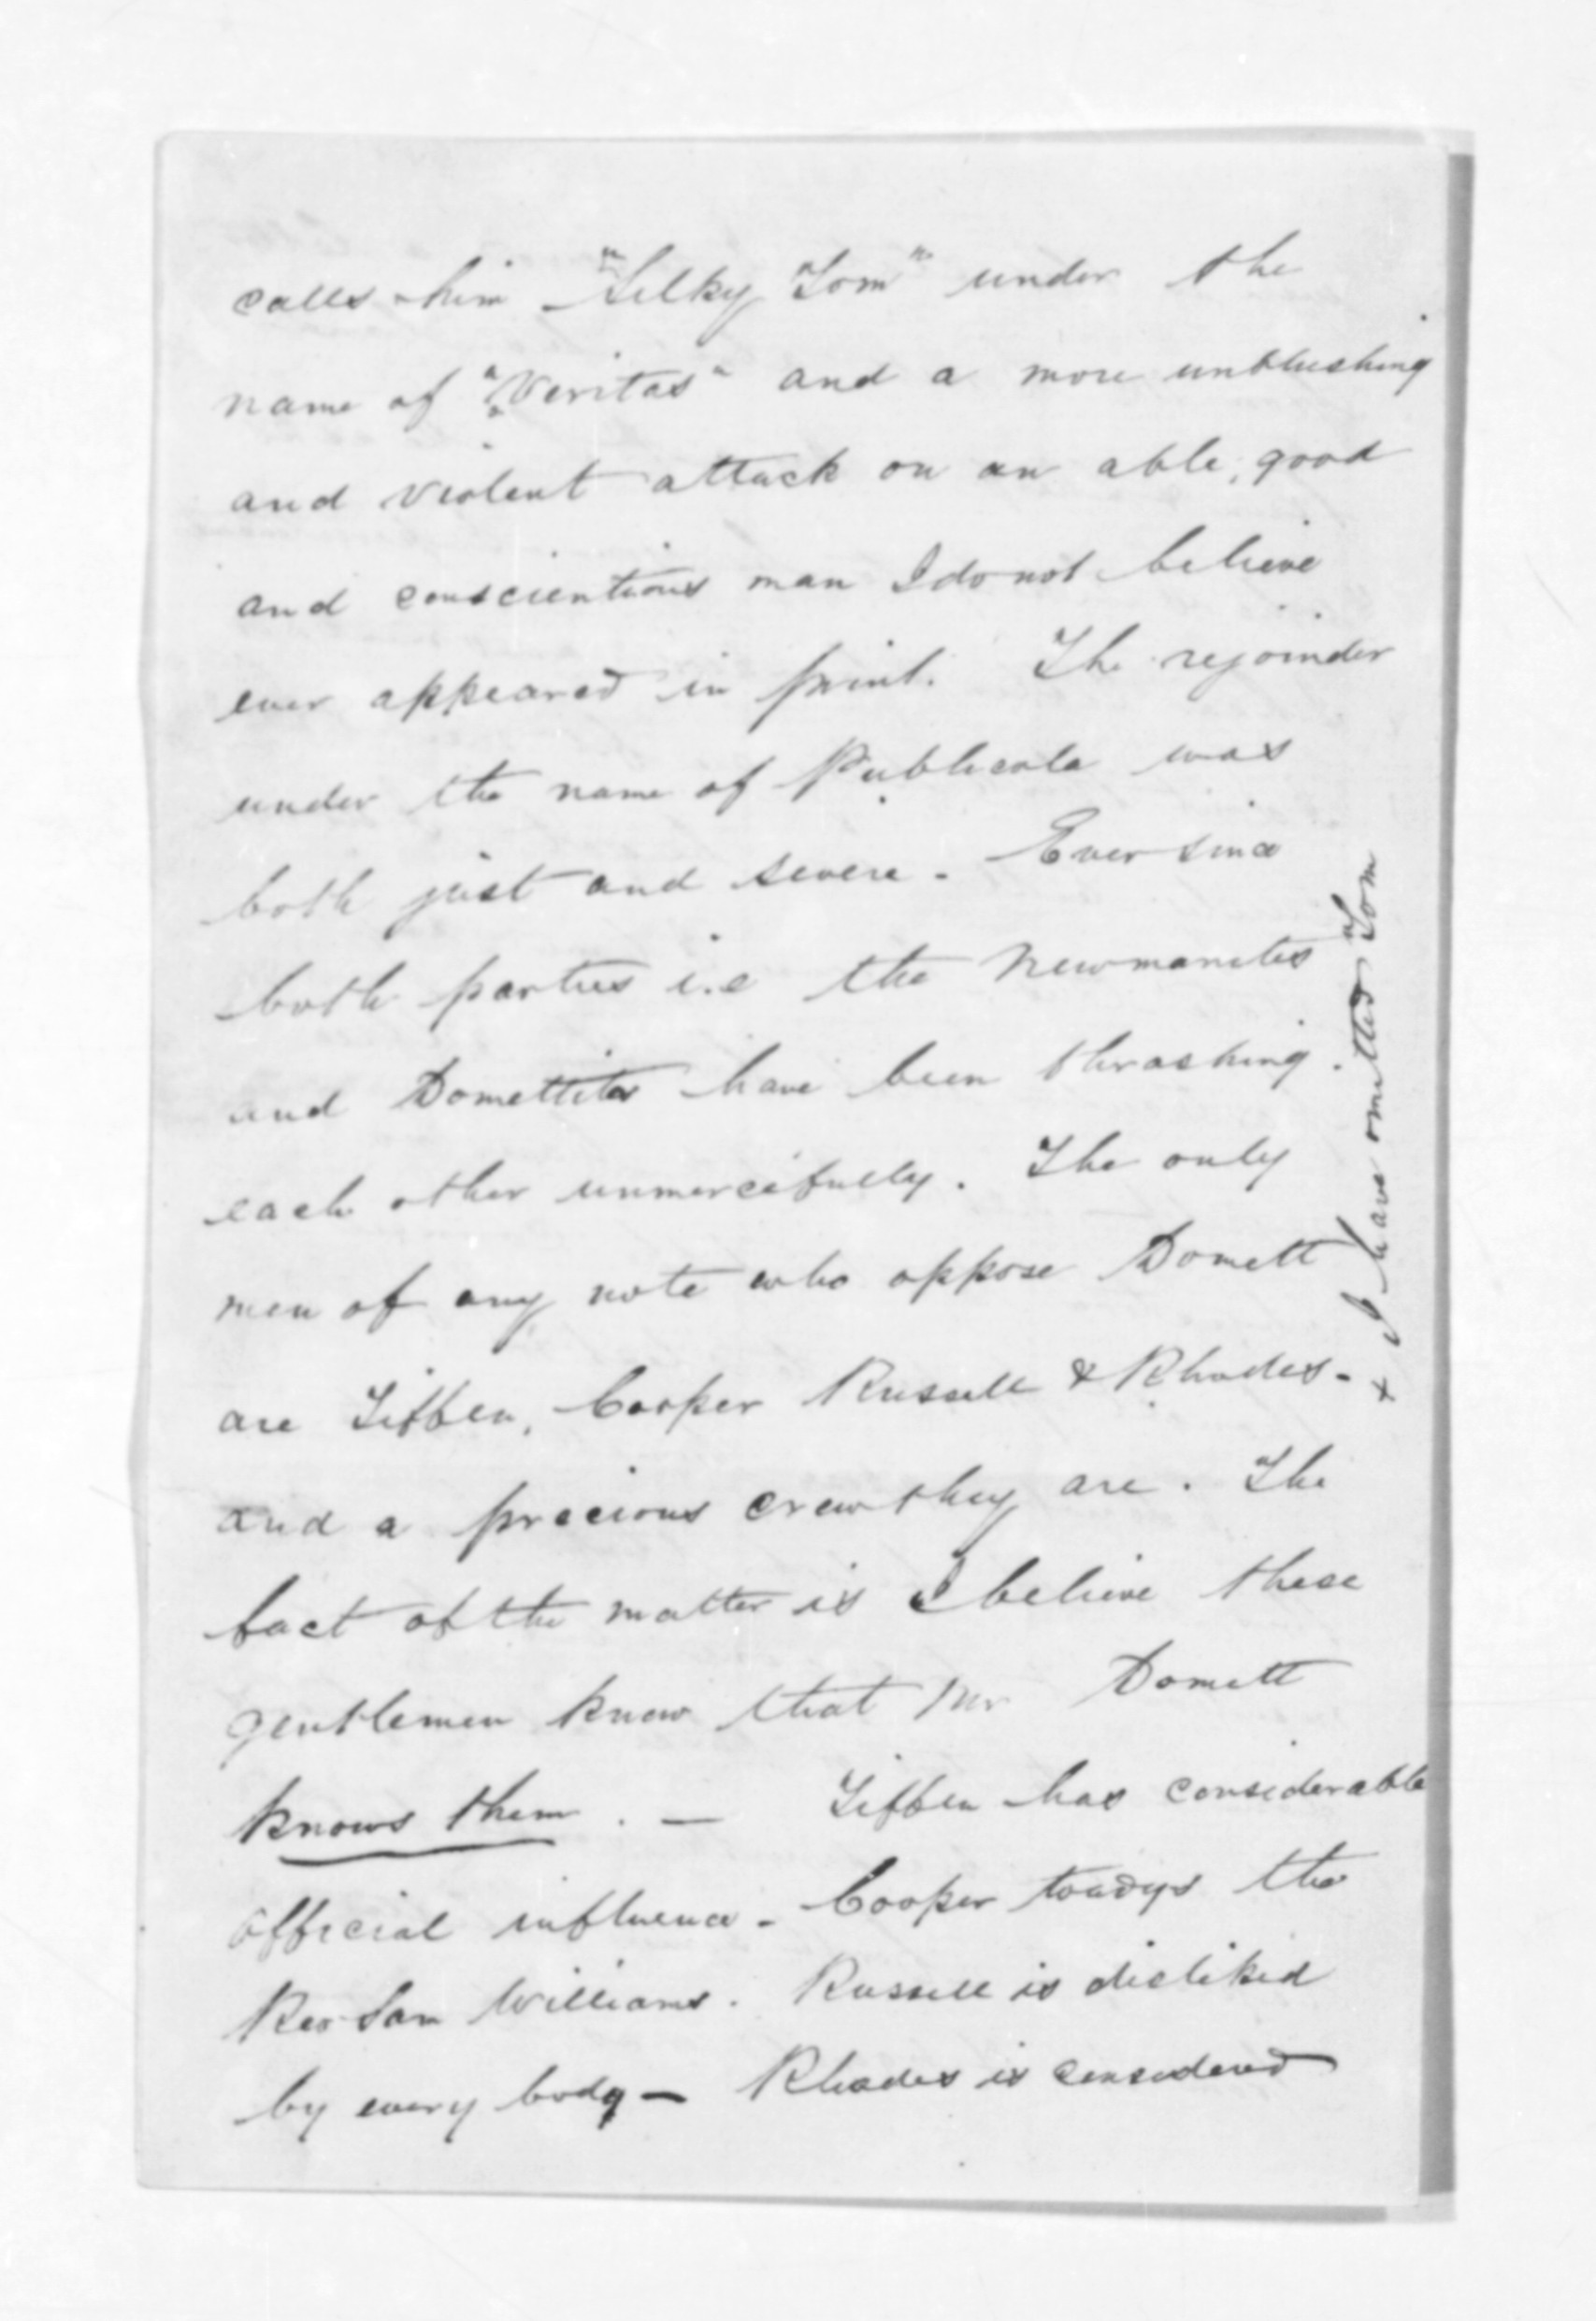 calls him "Silky Tom" under the
name of "Veritas" and a more unblushing
and violent attack on an able, good
and conscientious man I do not believe
ever appeared in print. The rejoinder
under the name of Publicola was
both just and severe. Ever since
both parties i.e the Newmanites
and Domettites have been thrashing
each other unmercifully. The only
men of any note who oppose Domett
are Tiffen, Cooper Russell & Rhodes -
and a precious crew they are. The
fact of the matter is I believe these
gentlemen know that Mr Domett
knows them. — Tiffen has considerable
official influence - Cooper toadys the
Rev Sam Williams. Russell is disliked
by every body — Rhodes is considered
+ I have omitted Tom